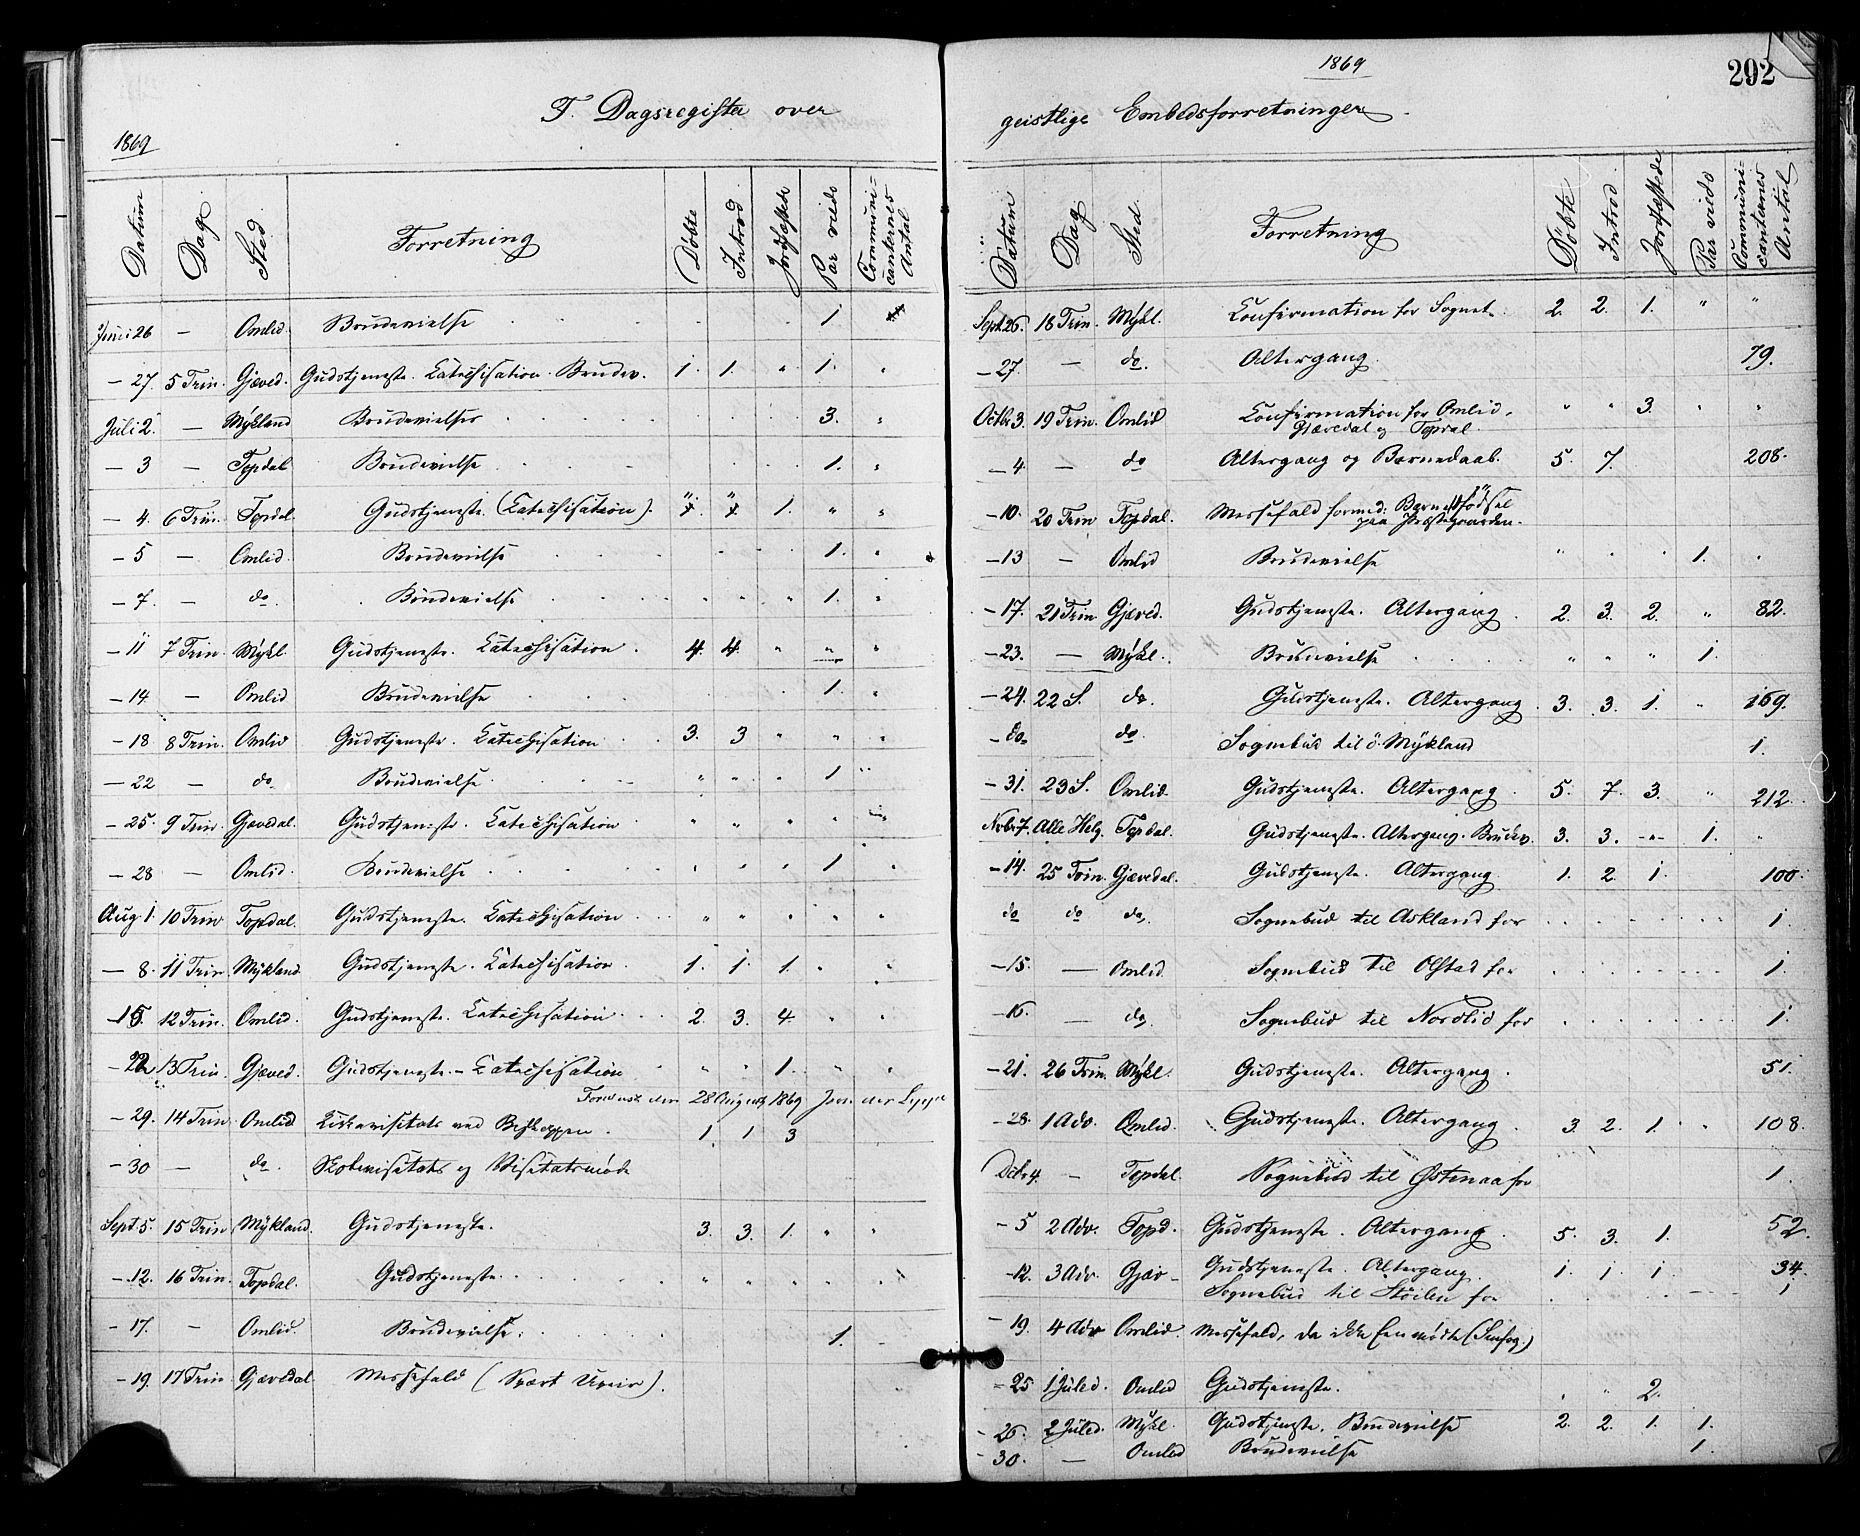 F. Dagsregister over
1869
Datum Dag Sted Forretning Døbte Introd. Jordfæstede Par viede Communicanternes Antal
Juni 26 — Omlid. Brudevielse 1.
— 27. 5 Trin. Gjæved. Gudstjeneste. Catechisation. Brudev. 1. 1. " 1. "
Juli 2. — Mykland Brudevielser 3. "
— 3 — Topdal Brudevielse 1. "
— 4. 6 Trin. Topdal. Gudstjeneste (Catechisation). " " 1. " "
— 5 — Omlid Brudevielse 1. "
— 7. — do. Brudevielse 1. "
— 11 7 Trin. Mykl. Gudstjeneste. Catechisation. 4. 4. " " "
— 14 — Omlid Brudevielse 1. "
— 18 8 Trin. Omlid Gudstjeneste. Catechisation 3. 3 " " "
— 22 — do. Brudevielse. " " " 1 "
— 25. 9 Trin. Gjævdal. Gudstjeneste. Catechisation " " " " "
— 28 — Omlid. Brudevielse 1 "
Aug 1. 10 Trin Topdal. Gudstjeneste. Catechisation " " " " "
— 8. 11 Trin. Mykland. Gudstjeneste. Catechisation. 1. 1. 1. " "
— 15. 12 Trin. Omlid. Gudstjeneste. Catechisation. 2. 3. 4. " "
— 22 13 Trin. Gjæved. Gudstjeneste. – Catechisation " " 1. " "
den 28 August 1869
— 29. 14 Trin. Omlid Kirkevisitats ved Biskoppen. 1. 1 3
— 30 — do. Skolevisitats og Visitatsmøde
Sept. 5. 15 Trin Mykland. Gudstjeneste. 3. 3. 1. " "
— 12. 16 Trin. Topdal. Gudstjeneste. " " " " "
— 17. — Omlid. Brudevielse. 1.
— 19. 17 Trin Gjævedal Messefald (Svært Uveir).
1869
292
geistlige Embedsforretninger.
Datum Dag Sted Forretning Døbte Introd. Jordfæstede Par viede Communicanternes Antal
Sept. 26. 18 Trin. Mykl. Confirmation for Sognet. 2. 2. 1. " "
— 27. — do. Altergang. 79.
Octbr 3. 19 Trin. Omlid Confirmation for Omlid, " " 3. " "
Gjævedal og Topdal.
— 4. — do Altergang og Barnedaab. 5. 7. 208.
— 10. 20 Trin Topdal. Messefald formed. Barnefødsel
paa Præstegaarden.
— 13 — Omlid Brudevielse " " " 1. "
— 17. 21 Trin Gjæved. Gudstjeneste. Altergang. 2. 3. 2. " 82.
— 23. — Mykl. Brudevielse " " " 1.
— 24. 22 S. do. Gudstjeneste. Altergang. 3. 3. 1. " 169.
— do. do. Sognebud til ö. Mykland 1.
— 31. 23 S. Omlid. Gudstjeneste. Altergang. 5. 7. 3. " 212.
Novbr 7. Alle Helg. Topdal. Gudstjeneste. Altergang. Brudev. 3. 3. -"- 1. "
— 14. 25 Trin. Gjævedal. Gudstjeneste. Altergang. 1. 2. 1. 100.
do do do. Sognebud til Askland for 1.
— 15. — Omlid. Sognebud til Olstad for 1.
— 16. — do. Sognebud til Nordlid for 1.
— 21. 26 Trin. Mykl. Gudstjeneste. Altergang. 51.
— 28. 1 Adv. Omlid. Gudstjeneste. Altergang. 3. 2. 1. " 108.
Dcbr 4. — Topdal. Sognebud til Østenaa for 1.
— 5 2 Adv. Topd. Gudstjeneste. Altergang. 5. 3. 1. 52.
— 12. 3 Adv. Gjæv– Gudstjeneste. Altergang. 1. 1. 1. 34.
Sognebud til Støilen for 1
— 19. 4 Adv Omlid. Messefald, da ikke Een mødte (Snefog.)
— 25 1 Juled. Omlid Gudstjeneste. " " 2.
— 26. 2 Juled. Mykl. Gudstjeneste. Brudevielse 2. 2. 1. 1.
— 30. — Omlid Brudevielse 1.